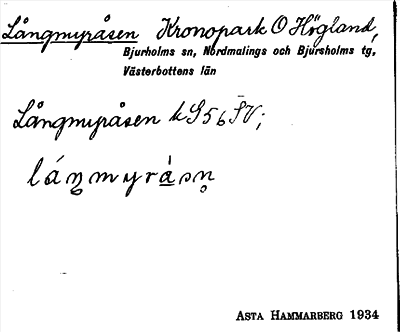 Långmyråsen Kronopark O Högland,
Bjurholms sn, Nordmalings och Bjursholms tg,
Västerbottens län
Långmyråsen k G56 SV;
Asta Hammarberg 1934